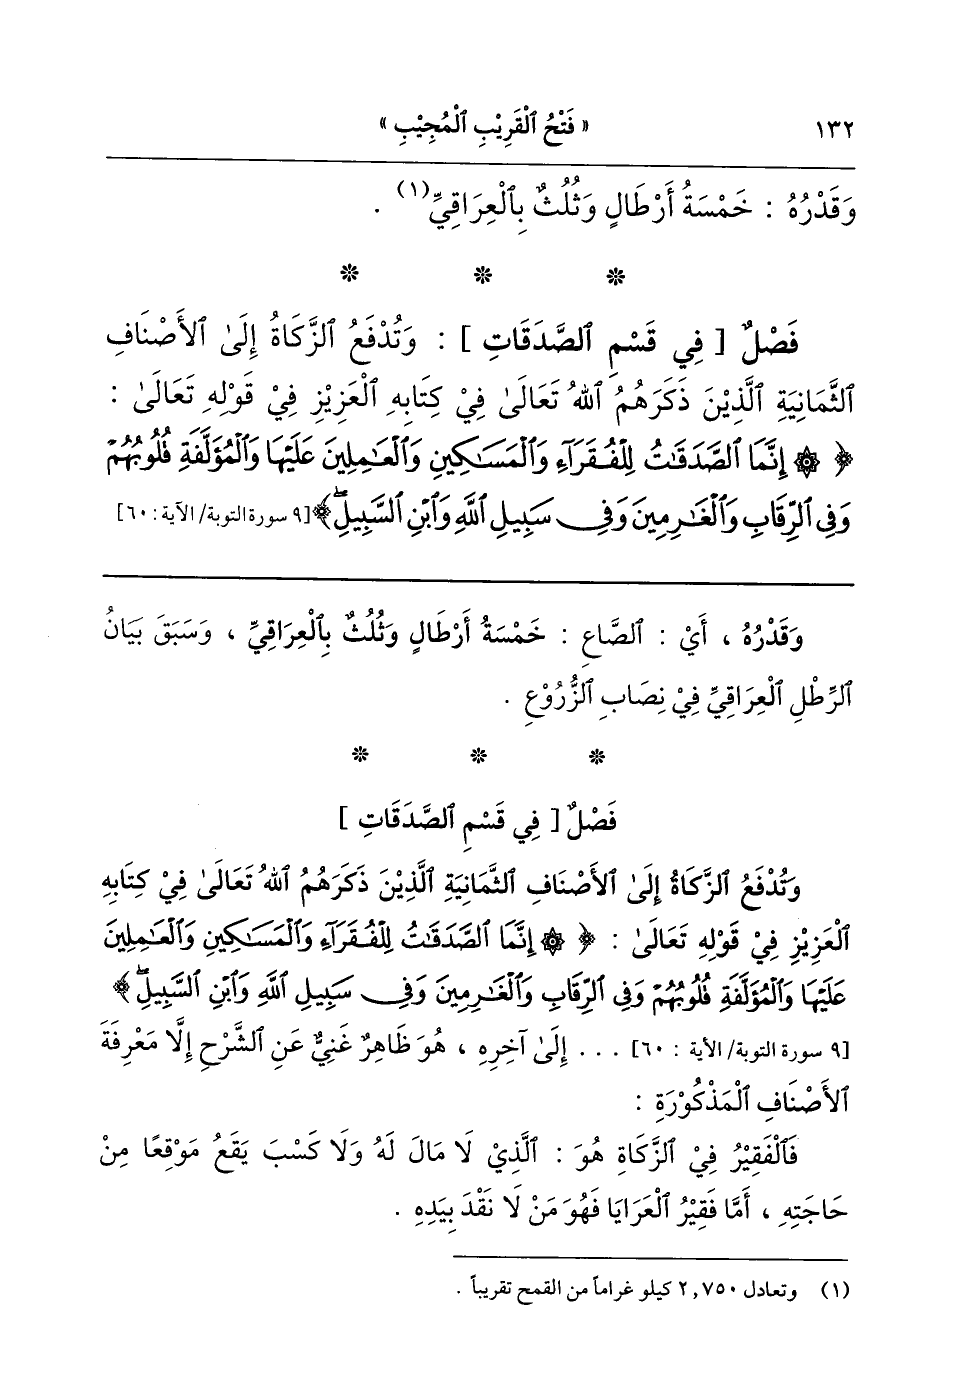 ١٣٢ « فَتْحُ ٱلْقَرِيْبِ ٱلْمُجِيْبِ »
وَقَدْرُهُ : خَمْسَةُ أَرْطَالٍ وَثُلُثٌ بِٱلْعِرَاقِيِّ(١) .
* * *
فَصْلٌ [ فِي قَسْمِ ٱلصَّدَقَاتِ ] : وَتُدْفَعُ ٱلزَّكَاةُ إِلَىٰ ٱلأَصْنَافِ
ٱلثَّمَانِيَةِ ٱلَّذِيْنَ ذَكَرَهُمُ ٱللهُ تَعَالَىٰ فِيْ كِتَابِهِ ٱلْعَزِيْزِ فِيْ قَوْلِهِ تَعَالَىٰ :
﴿ ۞ إِنَّمَا ٱلصَّدَقَـٰتُ لِلْفُقَرَآءِ وَٱلْمَسَـٰكِينِ وَٱلْعَـٰمِلِينَ عَلَيْهَا وَٱلْمُؤَلَّفَةِ قُلُوبُهُمْ
وَفِى ٱلرِّقَابِ وَٱلْغَـٰرِمِينَ وَفِى سَبِيلِ ٱللَّهِ وَٱبْنِ ٱلسَّبِيلِۖ ﴾ [٩ سورة التوبة/ الآية : ٦٠]
وَقَدْرُهُ ، أَيْ : ٱلصَّاعِ : خَمْسَةُ أَرْطَالٍ وَثُلُثٌ بِٱلْعِرَاقِيِّ ، وَسَبَقَ بَيَانُ
ٱلرِّطْلِ ٱلْعِرَاقِيِّ فِيْ نِصَابِ ٱلزُّرُوْعِ .
* * *
فَصْلٌ [ فِي قَسْمِ ٱلصَّدَقَاتِ ]
وَتُدْفَعُ ٱلزَّكَاةُ إِلَىٰ ٱلأَصْنَافِ ٱلثَّمَانِيَةِ ٱلَّذِيْنَ ذَكَرَهُمُ ٱللهُ تَعَالَىٰ فِيْ كِتَابِهِ
ٱلْعَزِيْزِ فِيْ قَوْلِهِ تَعَالَىٰ : ﴿ ۞ إِنَّمَا ٱلصَّدَقَـٰتُ لِلْفُقَرَآءِ وَٱلْمَسَـٰكِينِ وَٱلْعَـٰمِلِينَ
عَلَيْهَا وَٱلْمُؤَلَّفَةِ قُلُوبُهُمْ وَفِى ٱلرِّقَابِ وَٱلْغَـٰرِمِينَ وَفِى سَبِيلِ ٱللَّهِ وَٱبْنِ ٱلسَّبِيلِۖ ﴾
[٩ سورة التوبة/ الأية : ٦٠] . . . إِلَىٰ آخِرِهِ ، هُوَ ظَاهِرٌ غَنِيٌّ عَنِ ٱلشَّرْحِ إِلَّا مَعْرِفَةَ
ٱلأَصْنَافِ ٱلْمَذْكُوْرَةِ :
فَٱلْفَقِيْرُ فِيْ ٱلزَّكَاةِ هُوَ : ٱلَّذِيْ لَا مَالَ لَهُ وَلَا كَسْبَ يَقَعُ مَوْقِعًا مِنْ
حَاجَتِهِ ، أَمَّا فَقِيْرُ ٱلْعَرَايَا فَهُوَ مَنْ لَا نَقْدَ بِيَدِهِ .
(١) وتعادل ٢,٧٥٠ كيلو غراماً من القمح تقريباً .